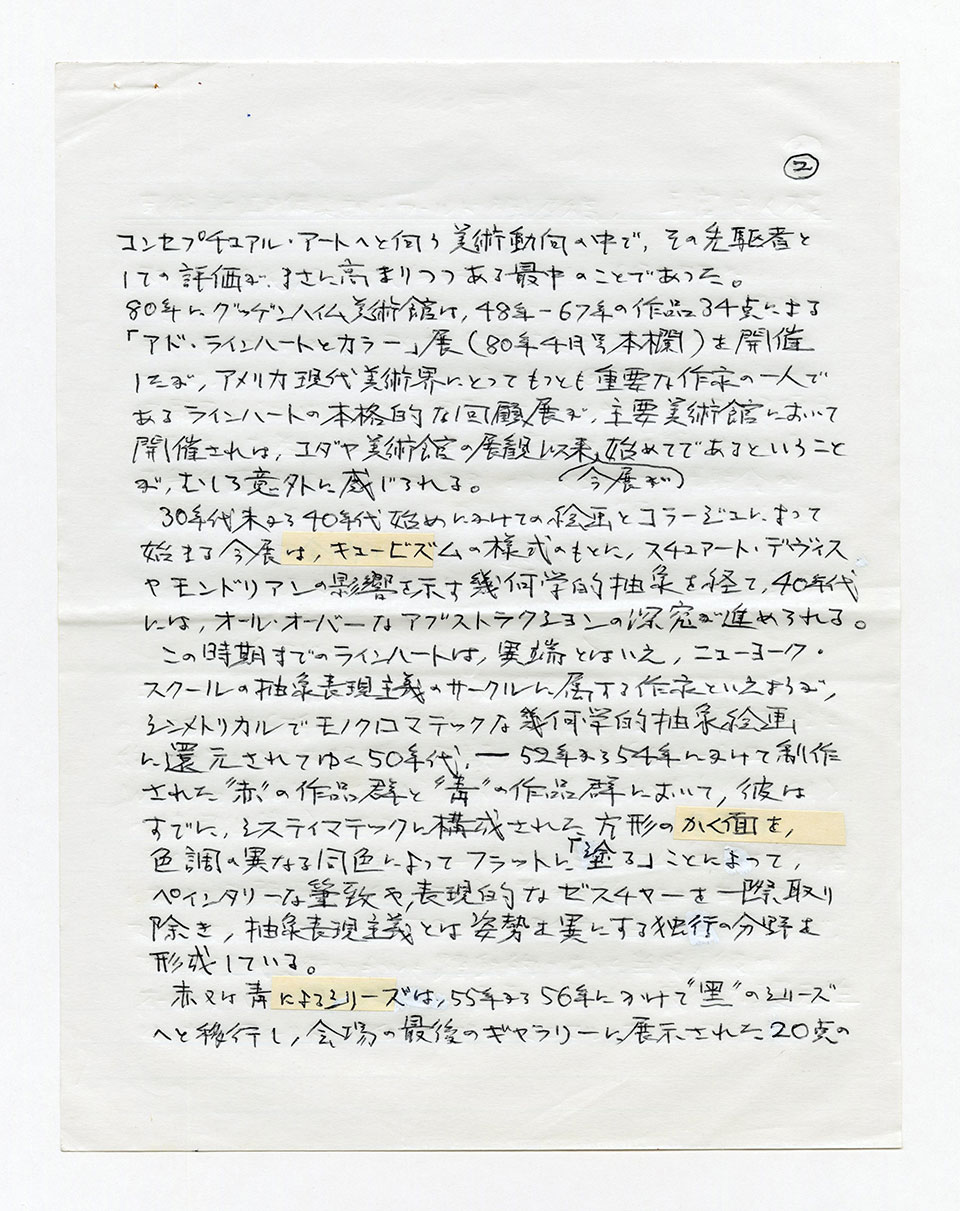 ②
コンセプチュアル・アートへと向う美術動向の中で、その先駆者と
しての評価が、まさに高まりつつある最中のことであった。
80年にグッゲンハイム美術館は、48年－67年の作品34点による
「アド・ラインハートとカラー」展(80年4月号本欄)を開催
したが、アメリカ現代美術界にとってもっとも重要な作家の一人で
あるラインハートの本格的な回顧展が、主要美術館において
開催されは、ユダヤ美術館の展観以来、始めてであるということ
が、むしろ意外に感じられる。
今展が
30年代末から40年代始めにかけての絵画とコラージュによって
始まる今展は、キュービズムの様式のもとに、スチュアート・デヴィス
やモンドリアンの影響を示す幾何学的抽象を経て、40年代
には、オール・オーバーなアブストラクションの深究が進められる。
この時期までのラインハートは、異端とはいえ、ニューヨーク・
スクールの抽象表現主義のサークルに属する作家といえようが、
シンメトリカルでモノクロマテックな幾何学的抽象絵画
に還元されてゆく50年代、― 52年から54年にかけて制作
された"赤"の作品群と"青"の作品群において、彼は
すでに、システィマテックに構成された方形のかく面を、
色調の異なる同色によってフラットに「塗る」ことによって、
ペインタリーな筆致や、表現的なゼスチャーを一際取り
除き、抽象表現主義とは姿勢を異にする独行の分野を
形成している。
赤又は青によるシリーズは、55年から56年にかけて"黒"のシリーズ
へと移行し、会場の最後のギャラリーに展示された20点の